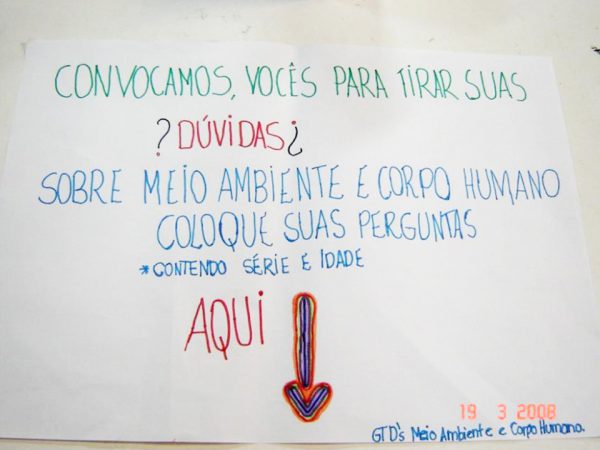 CONVOCAMOS, VOCÊS PARA TIRAR SUAS
? DÚVIDAS ¿
SOBRE MEIO AMBIENTE E CORPO HUMANO
COLOQUE SUAS PERGUNTAS
*CONTENDO SÉRIE E IDADE
AQUI
19 3 2008
GTD's Meio Ambiente e Corpo Humano.